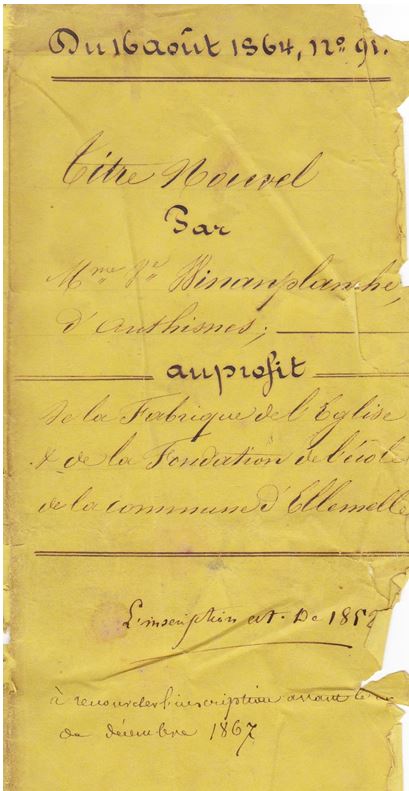 Du 16 août 1864, n.º 91.
Titre Nouvel
Par
Mme Ve Winanplanche,
d'Anthisnes;
au profit
de la Fabrique de l'Eglise
& de la Fondation de l'école
de la commune d'Ellemelle
L'inscription est De 1852
à renouveler l'inscription avant le
de décembre 1867